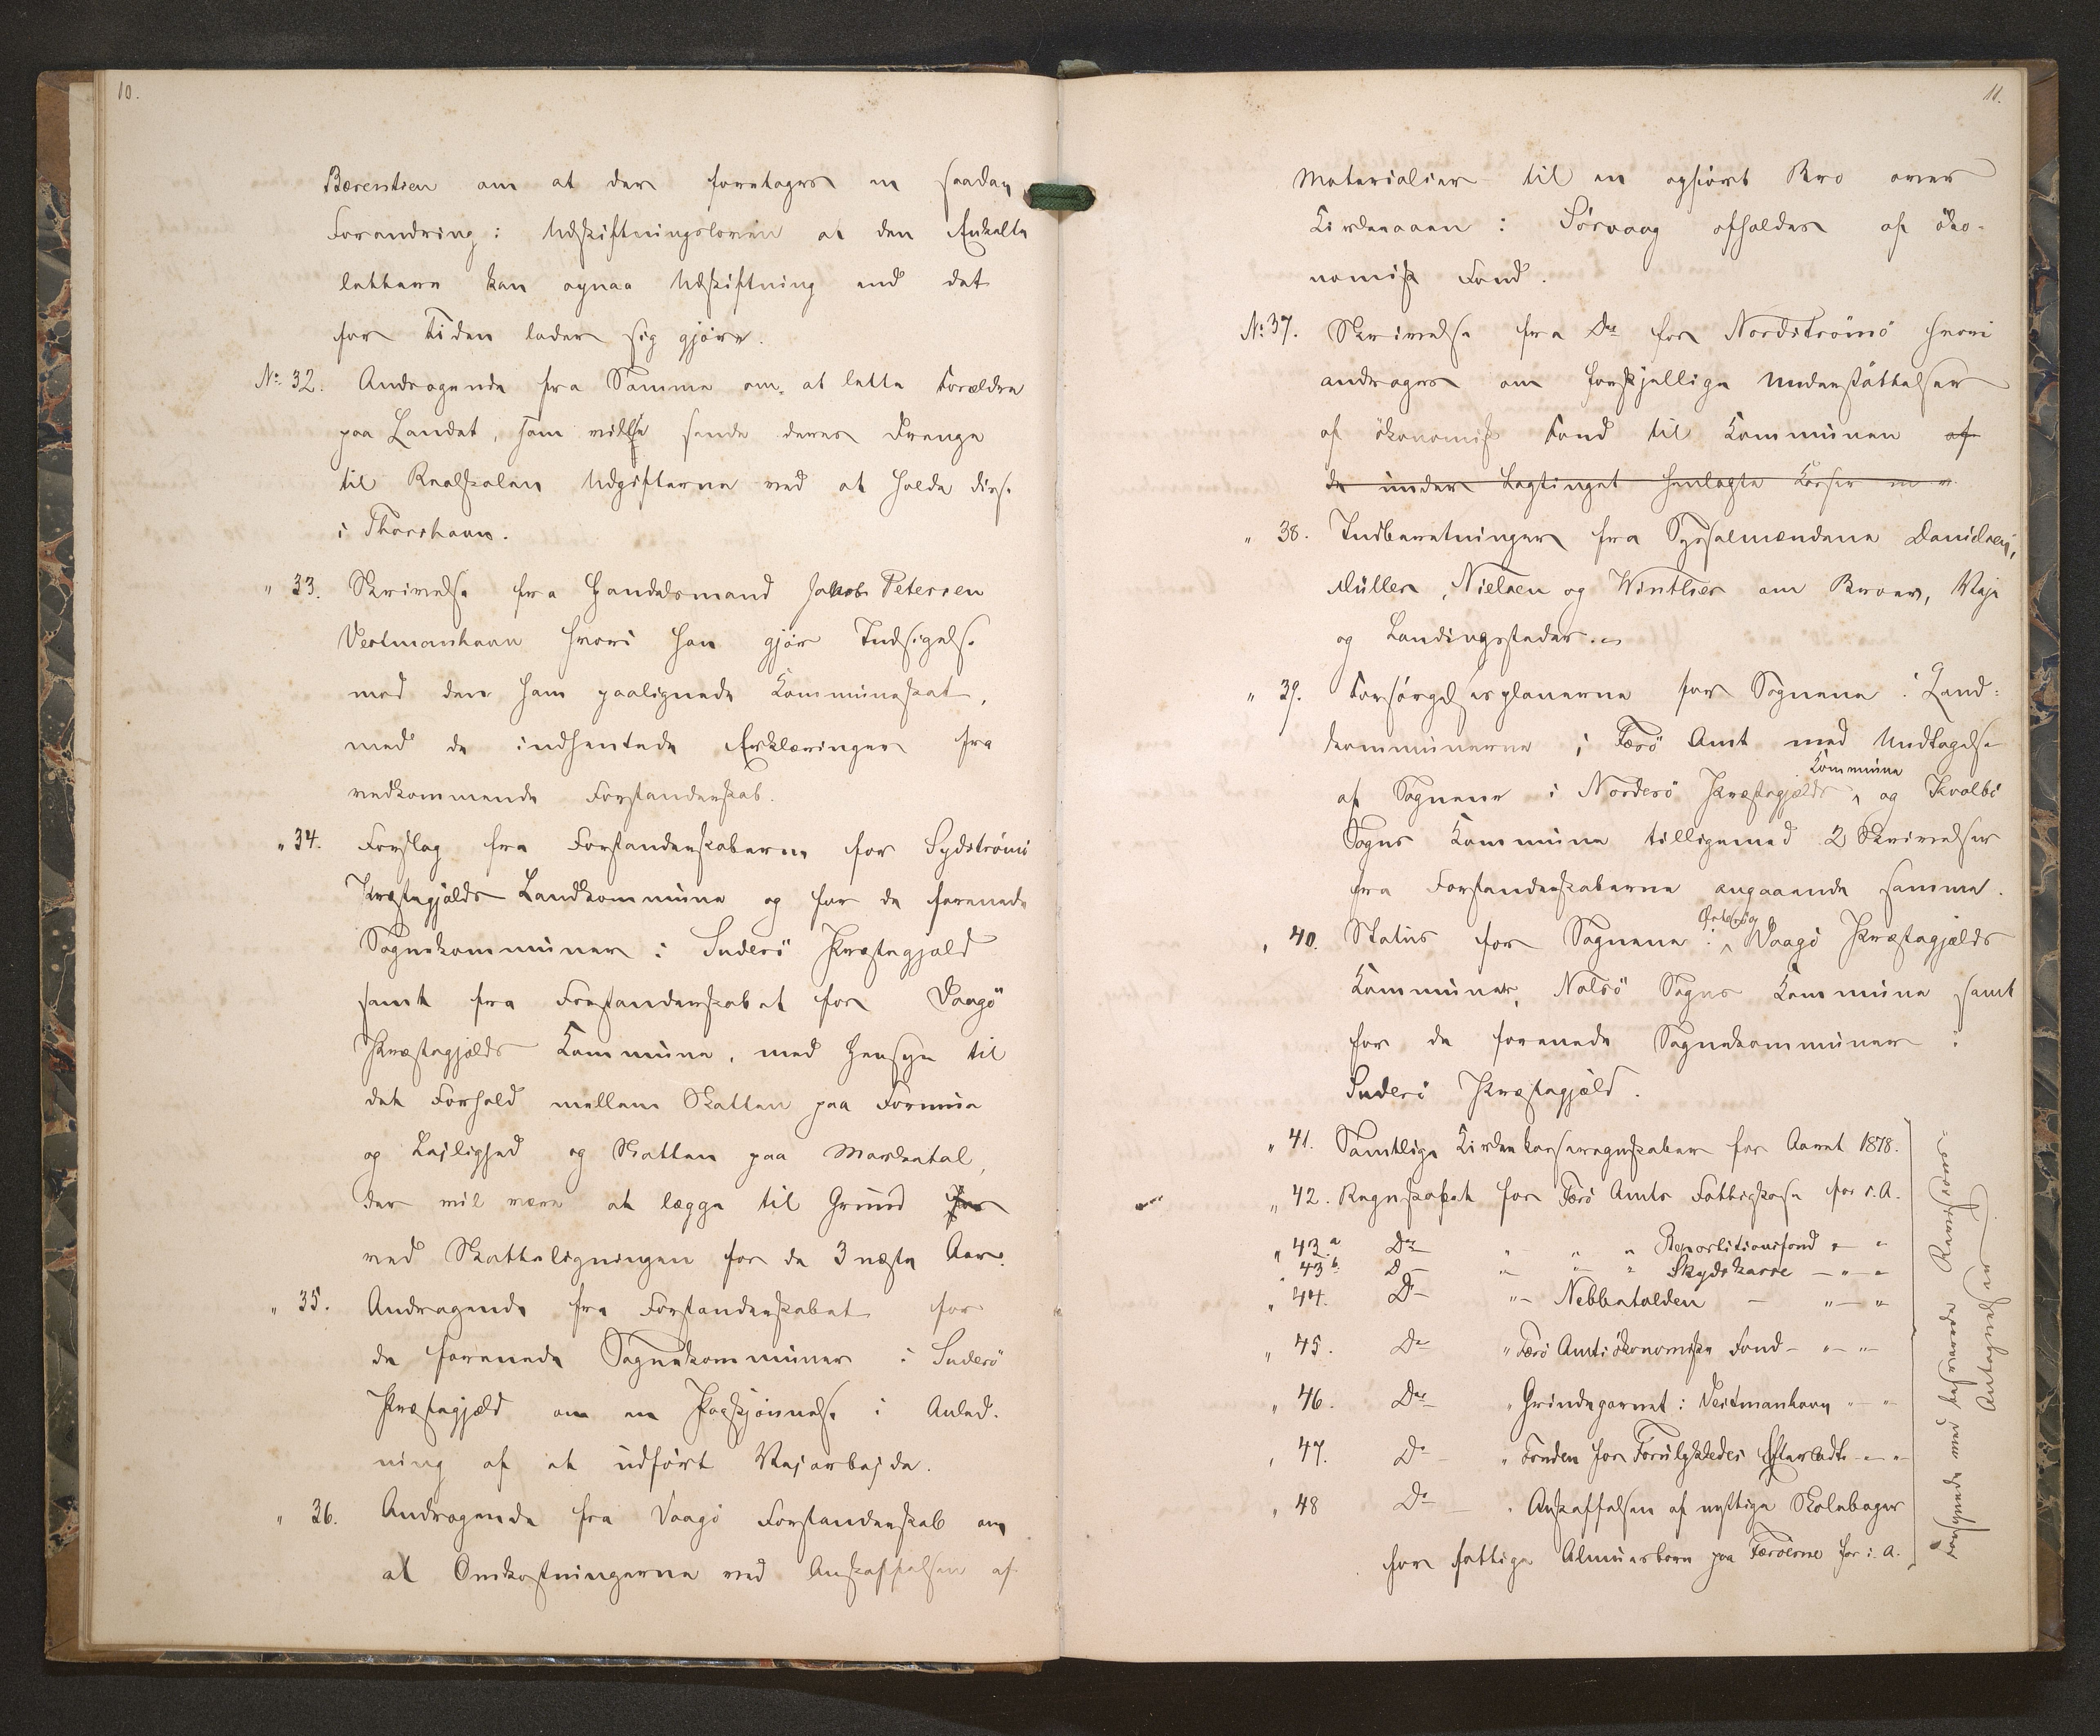 10.
Bærentsen om at der foretages en saadan
Forandring i Udskiftningsloven at den Enkelte
lettere kan opnaa Udskiftning end det
for Tiden lader sig gjøre.
No. 32. Andragende fra Samme om at lette Forældre
paa Landet, som ville sende deres Drenge
til Realskolen Udgifterne ved at holde disse
i Thorshavn.
" 33. Skrivelse fra Handelsmand Jakob Petersen
Vestmanhavn hvori han gjør Indsigelse
mod den ham paalignede Kommuneskat,
med de indhentede Erklæringer fra
vedkommende Forstanderskab.
" 34. Forslag fra Forstanderskaberne for Sydstrømö
Præstegjælds Landkommune og for de forenede
Sognekommuner i Suderö Præstegjæld
samt fra Forstanderskabet for Vaagö
Præstegjælds Kommune, med Hensyn til
det Forhold mellem Skatten paa Formue
og Lejlighed og Skatten paa Marketal,
der vil være at lægge til Grund for
ved Skatteligningen for de 3 næste Aar.
" 35. Andragende fra Forstanderskabet for
de forenede Sognekommuner i Suderö
Præstegjæld om en Paaskjønnelse i Anled-
ning af et udført Vejarbejde.
" 36. Andragende fra Vaagö Forstanderskab om
at Omkostningerne ved Anskaffelsen af
11.
Materialier til en opført Bro over
Kirkeaaen i Sörvaag afholdes af øko-
nomisk Fond.
No. 37. Skrivelse fra Do for Nordströmö hvori
andrages om forskjellige Understøttelser
af økonomisk Fond til Kommunen af
de under Lagtinget henlagte Kasser m v.
" 38. Indberetninger fra Sysselmændene Danielsen,
Müller, Nielsen og Winther om Broer, Veje
og Landingssteder.
" 39. Forsørgelsesplanerne for Sognene i Land-
kommunerne i Færö Amt med Undtagelse
Kommune
af Sognene i Norderö Præstegjælds ^ og Kvalbö
Sogns Kommune tilligemed 2 Skrivelser
fra Forstanderskaberne angaaende samme.
Österö og
" 40. Status for Sognene i ^ Vaagö Præstegjælds
Kommuner, Nolsö Sogns Kommune samt
for de forenede Sognekommuner i
Suderö Præstegjæld.
" 41. Samtlige Kirkekasseregnskaber for Aaret 1878.
" 42. Regnskabet for Færö Amts Fattigkasse for s. A.
" 43.a Do " " " Repartitionsfond " - "
" 43b. Do " " " Skydskasse - " - "
" 44. Do " - Nebbetolden - " - "
" 45. Do " Færö Amts økonomiske Fond - " - "
" 46. Do " Grindegarnet i Vestmanhavn " - "
" 47. Do " Fonden for Forulykkedes Efterladte - " - "
" 48 Do " Anskaffelsen af nyttige Skolebøger
for fattige Almuesbørn paa Færøerne for s. A.
forsynede med besvarede Revisions-
Antegnelser